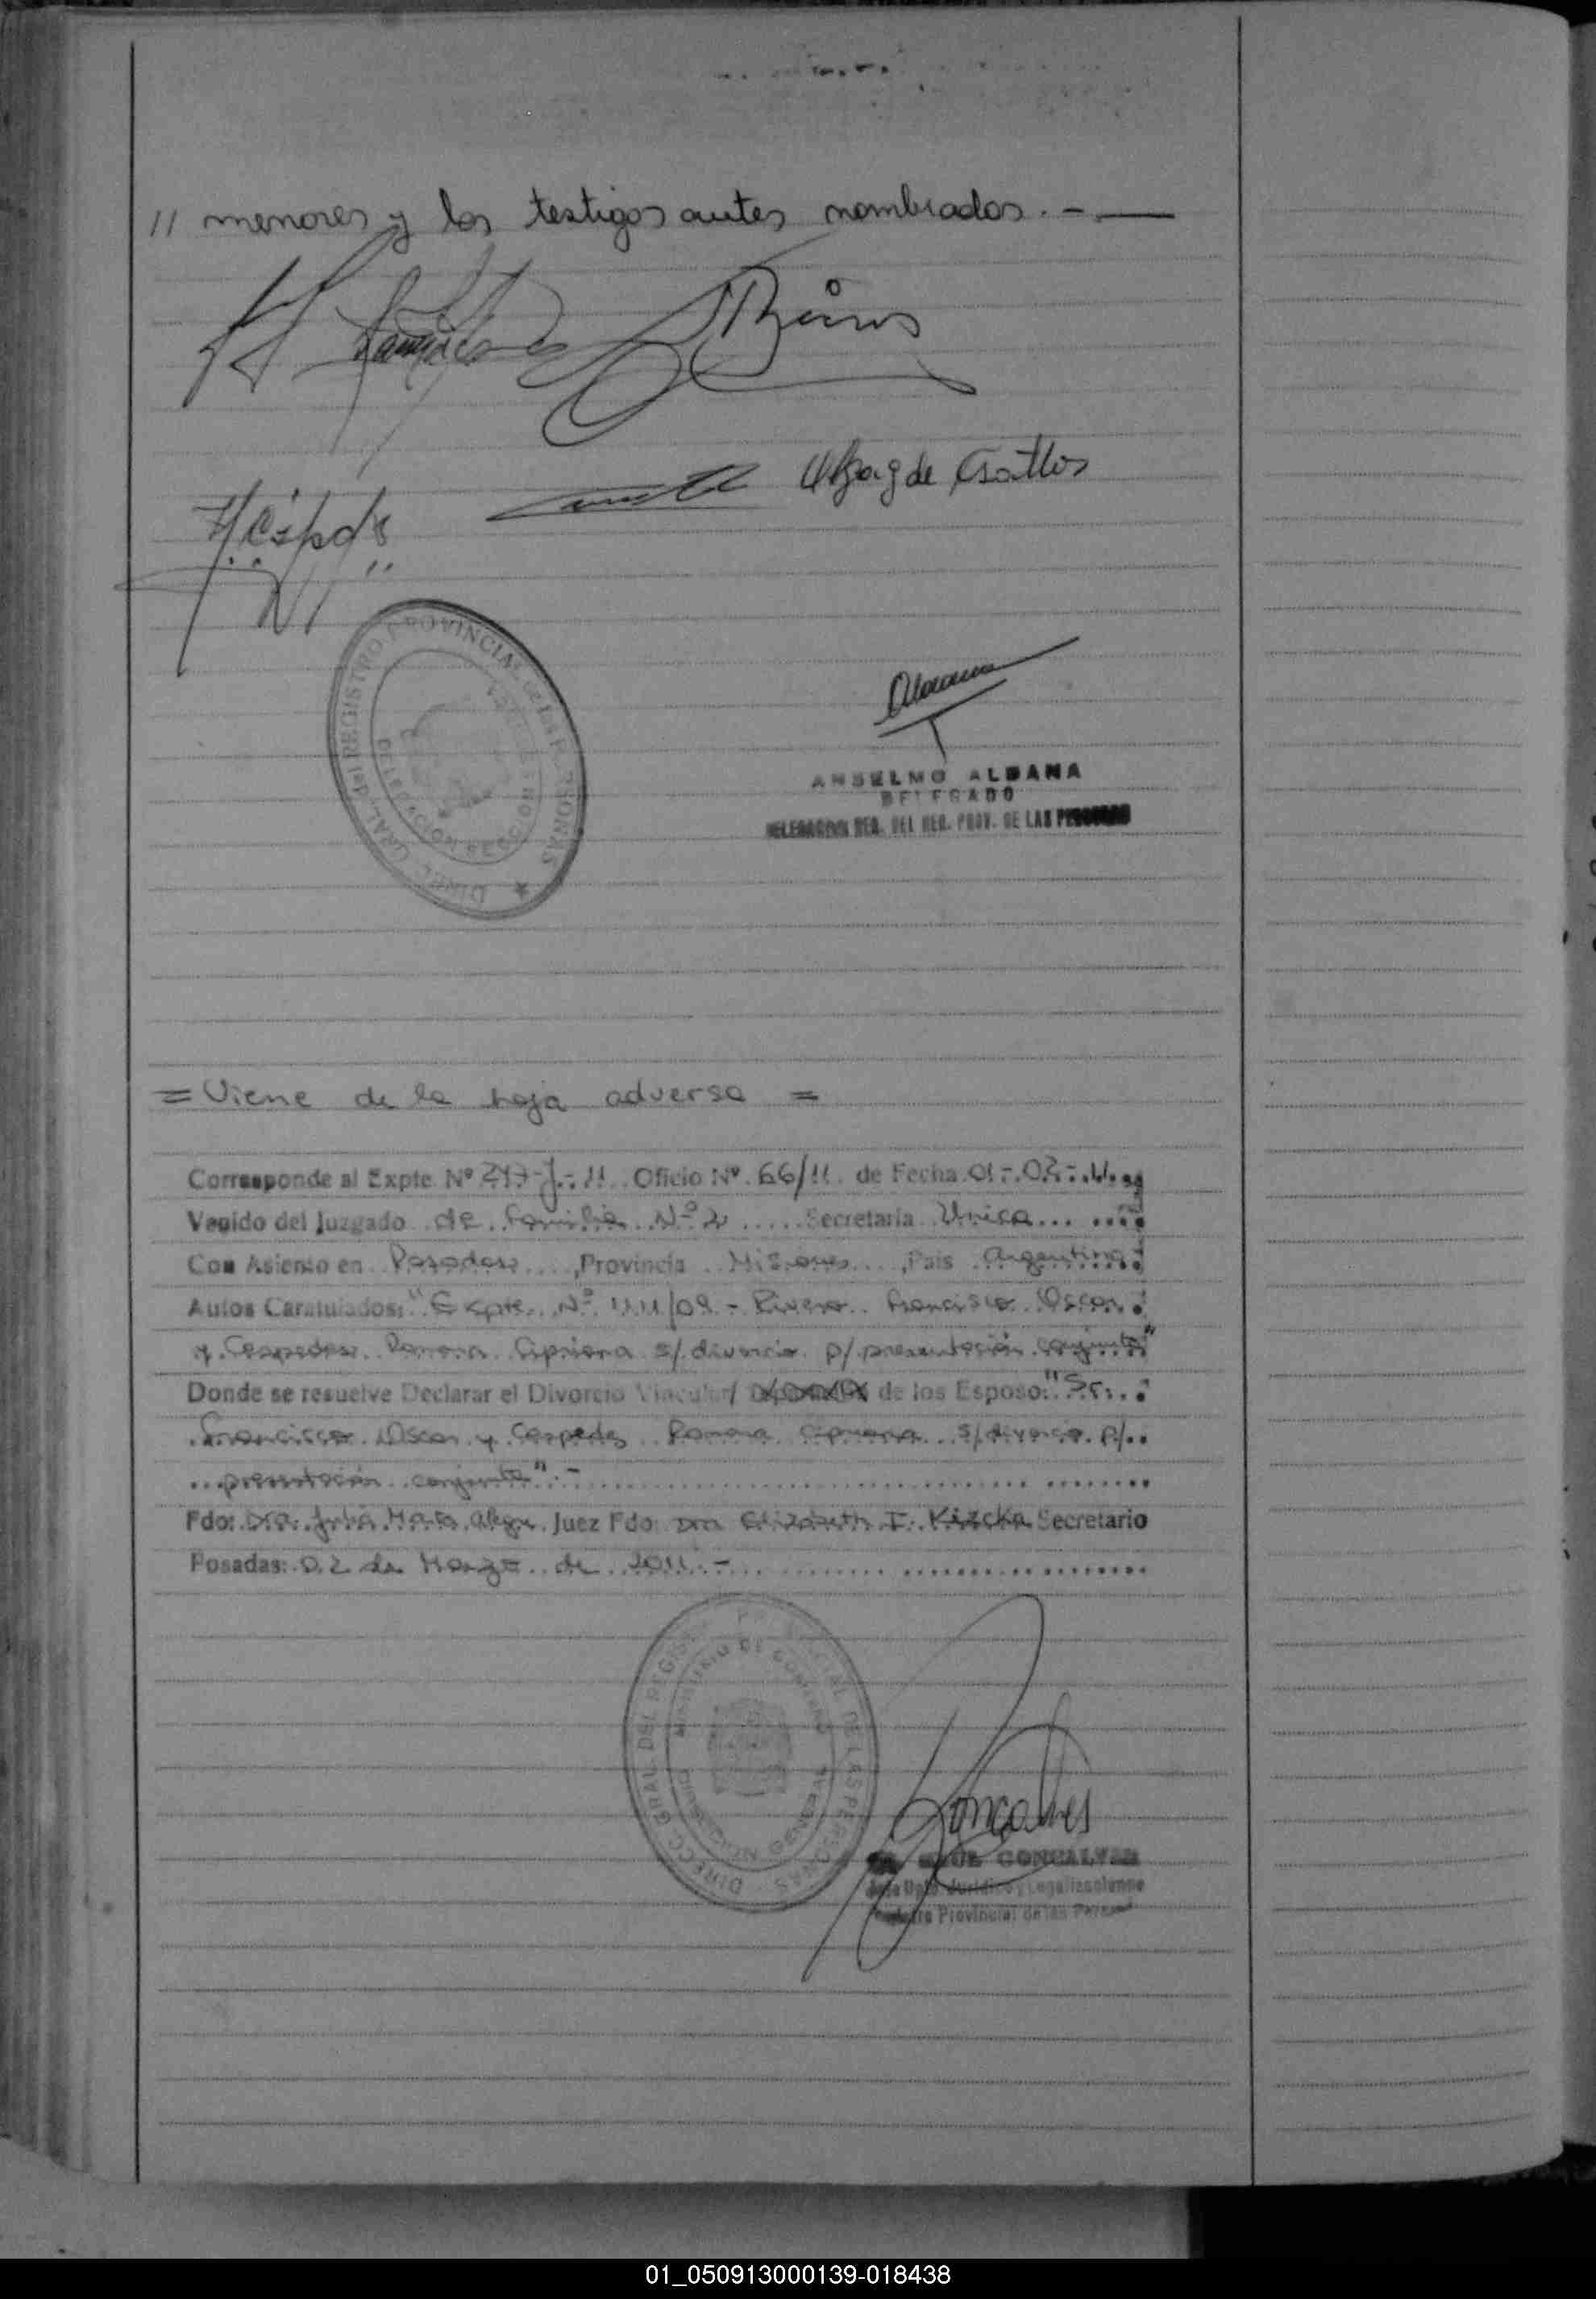 // menores y los testigos antes nombrados. - —
ANSELMO ALDANA
DELEGADO
DELEGACION DEL REG. PROV. DE LAS PERSONAS
DIREC. GRAL. del REGISTRO PROVINCIAL DE LAS PERSONAS
= Viene de la hoja adversa =
Corresponde al Expte Nº 247-J-11 Oficio Nº 66/11 de Fecha 01-02-11
Venido del Juzgado de Familia Nº 2 Secretaría Unica
Con Asiento en Posadas, Provincia Misiones, País Argentina
Autos Caratulados: "Expte. Nº 1111/09 - Rivero Francisco Oscar
y Cespedes Ramona Cipriana s/divorcio p/presentación conjunta"
Donde se resuelve Declarar el Divorcio Vincular/ de los Esposo: "Sr.
Francisco Oscar y Cespedes Ramona Cipriana s/divorcio p/
presentación conjunta". -
Fdo: Dra. Julia Marta Alegre Juez Fdo: Dra Elizabeth I. Kizcka Secretario
Posadas: 02 de Marzo de 2011. -
DIRECC. GRAL. DEL REGISTRO PROVINCIAL DE LAS PERSONAS
MINISTERIO DE GOBIERNO
Goncalves
RAUL GONCALVES
Jefe Dpto. Jurídico y Legalizaciones
Registro Provincial de las Personas
01_050913000139-018438